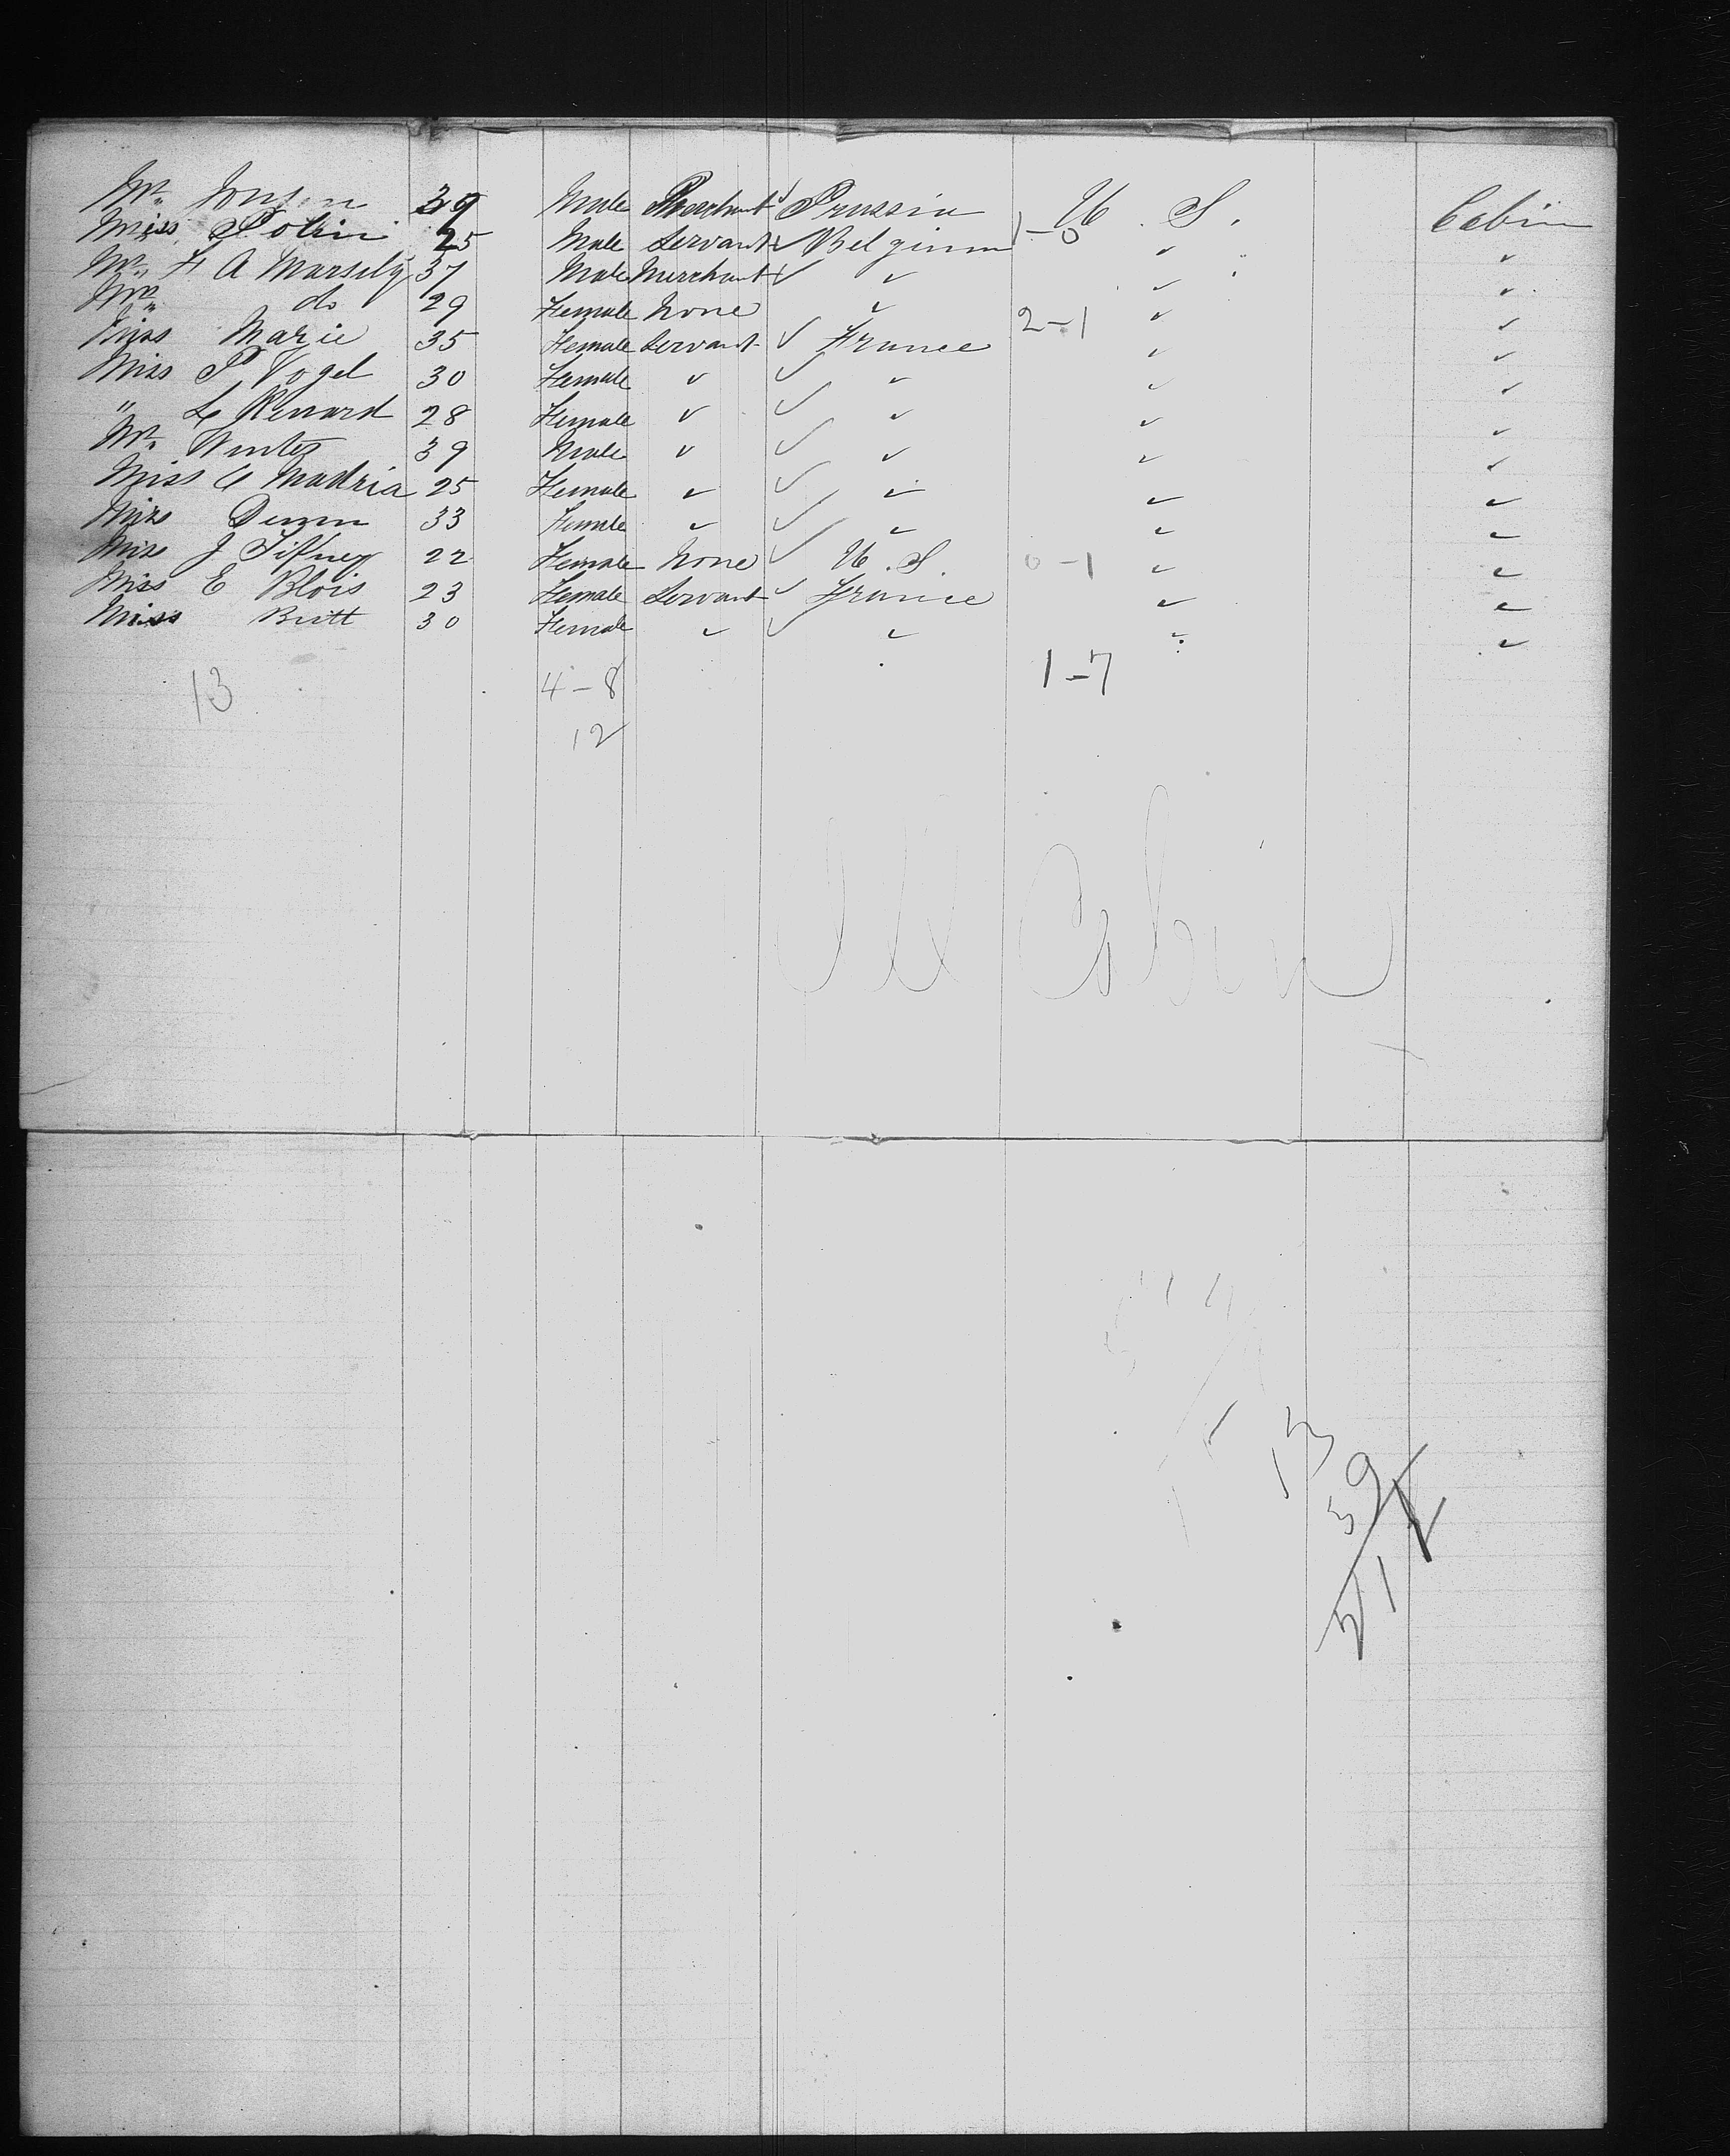 Mr. Jonsen 39 Male Merchant Prussia U. S. Cabin
Miss Polin 25 Male Servant ✓ Belginm 1-0 ✓ ✓
Mr. F A Marsily 37 Male Merchant ✓ ✓ ✓ ✓
Mrs. do 29 Female None ✓ 2-1 ✓ ✓
Miss Marie 35 Female Servant ✓ France ✓ ✓
Miss P Vogel 30 Female ✓ ✓ ✓ ✓ ✓
" L Renard 28 Female ✓ ✓ ✓ ✓ ✓
Mr. Winter 39 Male ✓ ✓ ✓ ✓ ✓
Miss C Madria 25 Female ✓ ✓ ✓ ✓ ✓
Miss 33 Female ✓ ✓ ✓ ✓ ✓
Miss J 22 Female None ✓ U. S. 0-1 ✓ ✓
Miss E Blois 23 Female Servant ✓ France ✓ ✓
Miss Butt 30 Female ✓ ✓ ✓ ✓ ✓
13 4-8 1-7
12
All Cabin
13
39